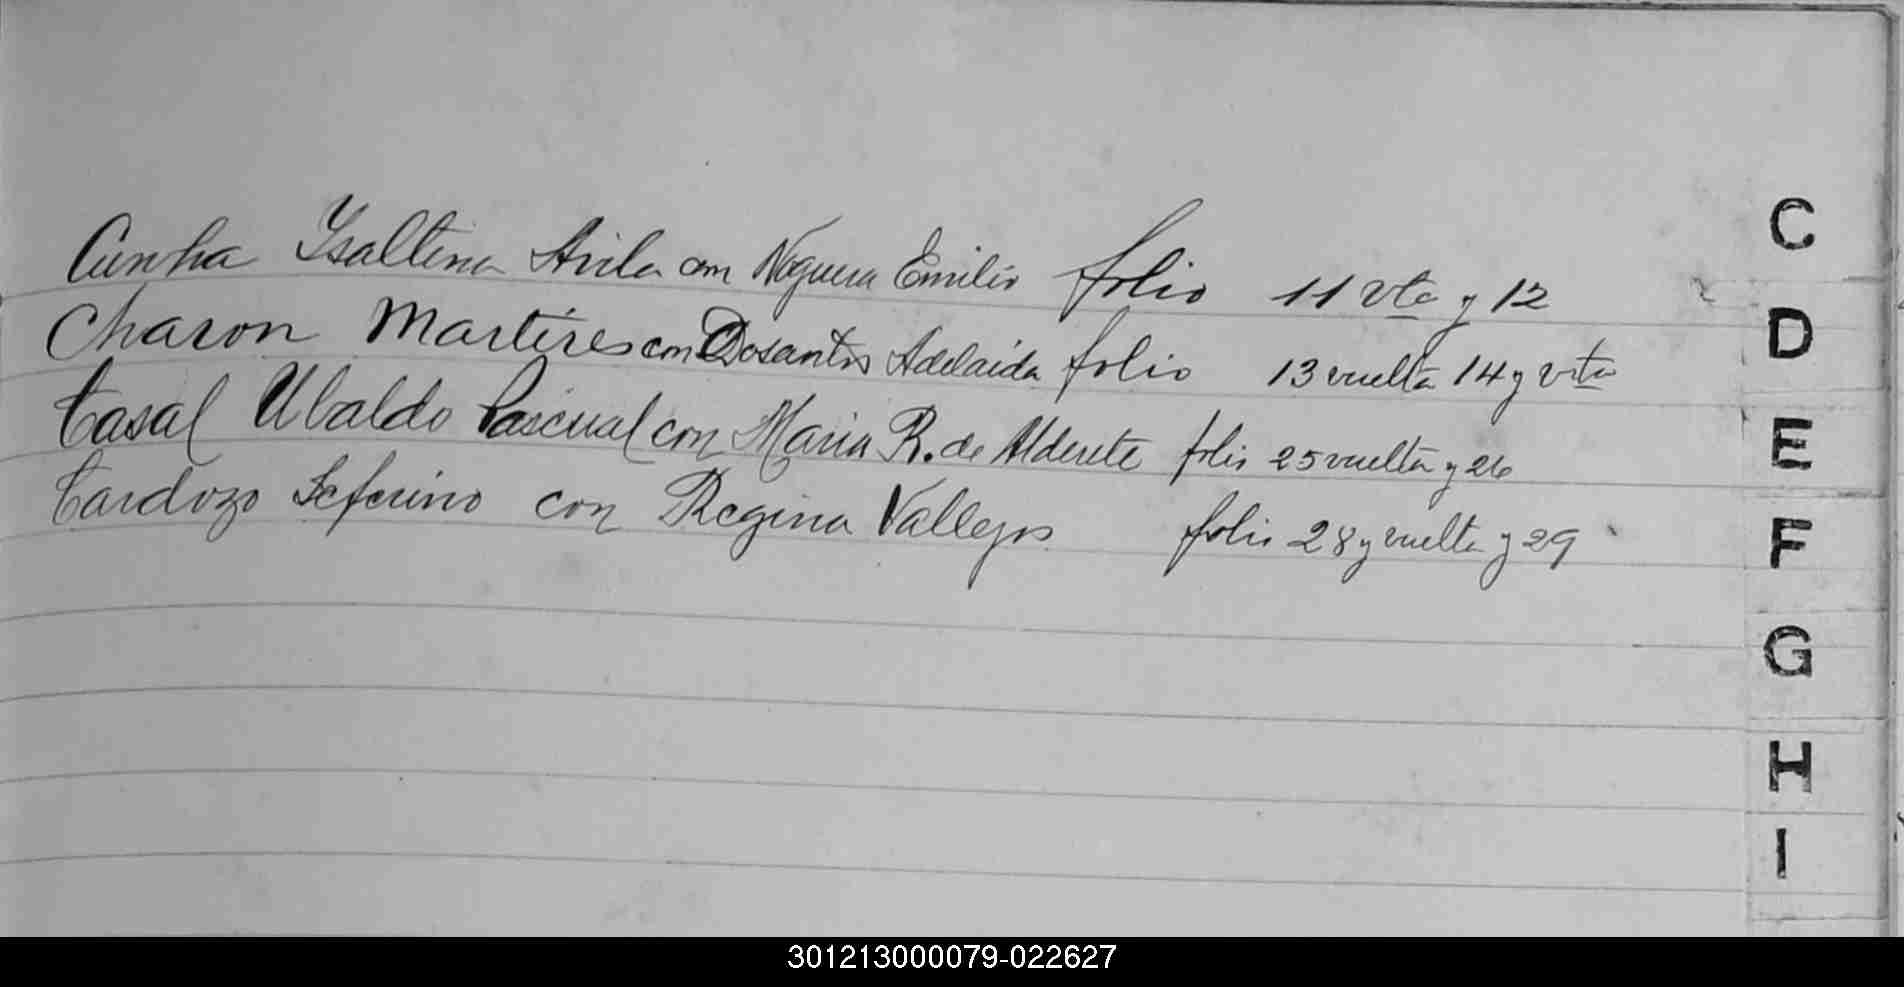 Cunha Ysaltina Avila con Noguera Emilio folio 11 vta y 12
Charon Martires con Dosantos Adelaida folio 13 vuelta 14 y vta
Casal Ubaldo Pascual con Maria R. de Alderete folio 25 vuelta y 26
Cardozo Seferino con Regina Vallejos folio 28 y vuelta y 29
C
D
E
F
G
H
I
301213000079-022627